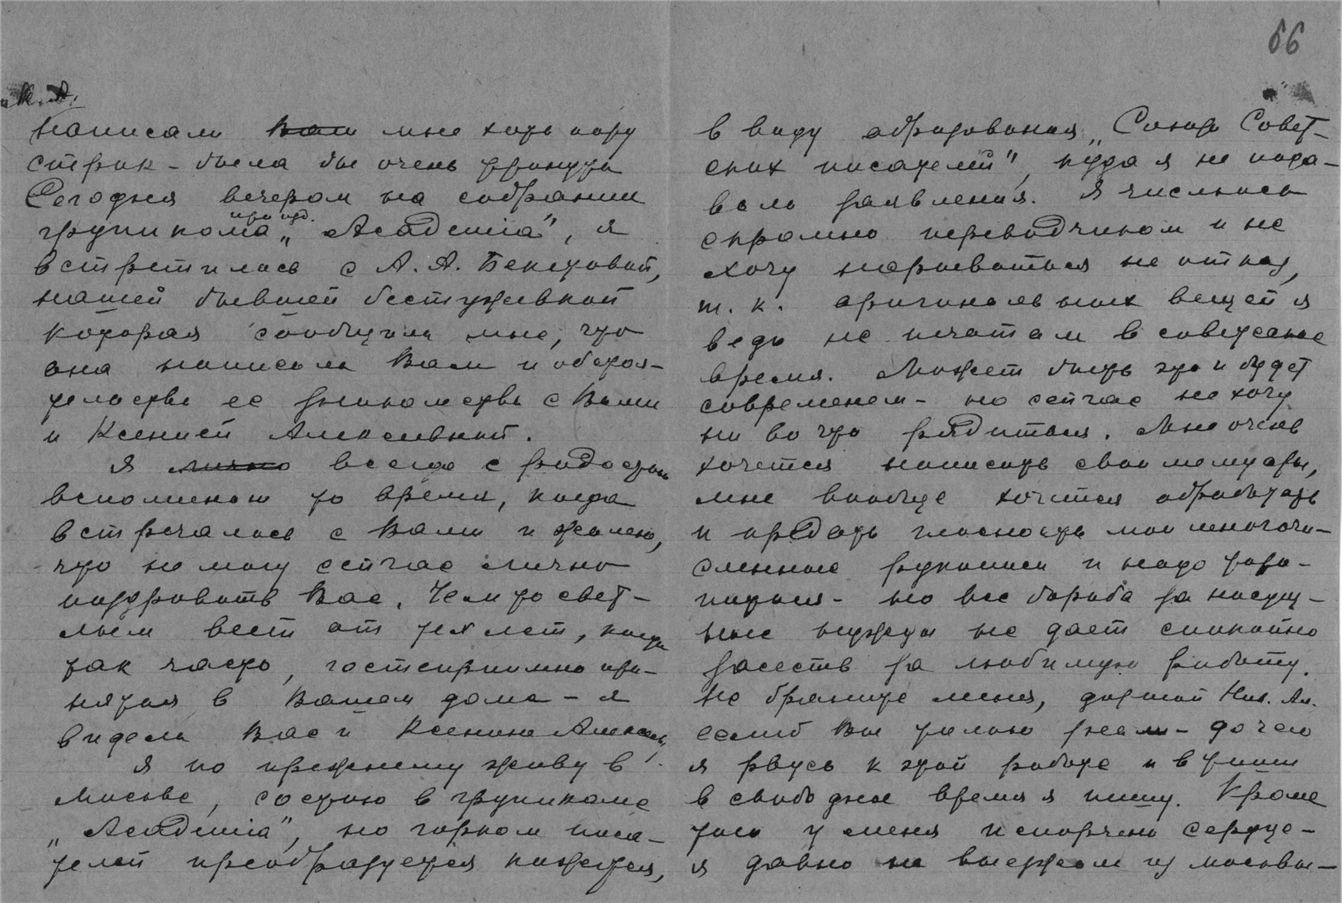 66
Н. А.
написали Вам мне хоть пару
строк - была бы очень тронута
Сегодня вечером на собрании
групкома при изд. „Academia", я
встретилась с А. А. Бекетовой,
нашей бывшей бестужевкой
которая сообщила мне, что
она написала Вам и обстоя-
тельства ее знакомства с Вами
и Ксенией Алексеевной.
Я лично всегда с радостью
вспоминаю то время, когда
встречалась с Вами и жалею,
что не могу сейчас лично
поздравить Вас. Чем то свет-
лым веет от тех лет, когда
так часто, гостеприимно при-
нятая в Вашем доме - я
видела Вас и Ксению Алексеев.
Я по прежнему живу в
Москве, состою в групкоме
„Academia", но горком писа-
телей преобразуется кажется,
в виду образования „Союза Совет-
ских писателей", куда я не пода-
вала заявления. Я числюсь
скромно переводчиком и не
хочу нарываться на отказ,
т. к. оригинальных вещей я
ведь не печатала в советское
время. Может быть это и будет
современем - но сейчас не хочу
ни во что рядиться. Мне очень
хочется написать свои мемуары,
мне вообще хочется обработать
и предать гласности мои многочи-
сленные рукописи и надо торо-
питься - но все борьба за насущ-
ные нужды не дает спокойно
засесть за любимую работу.
Не браните меня, дорогой Ник. Ал.
еслиб Вы только знали - до чего
я рвусь к этой работе и в
в свободное время я пишу. Кроме
того у меня испорчено сердце -
я давно не выезжала из Москвы -